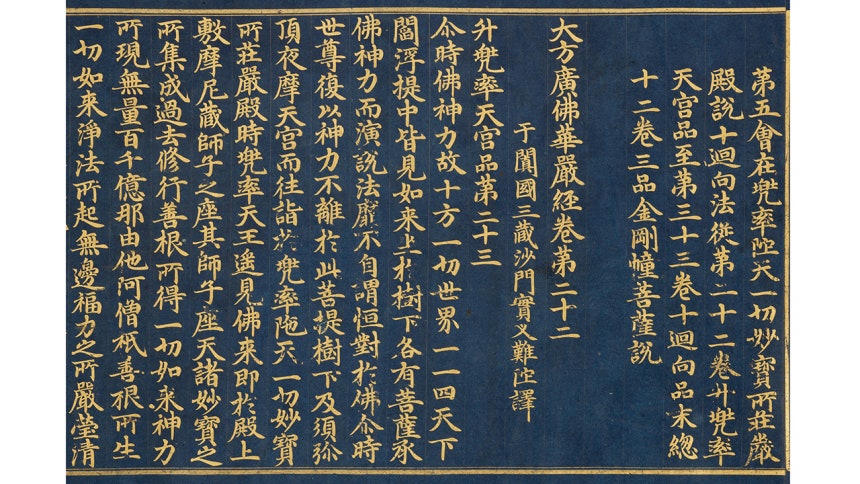 第五會在兜率陁天一切妙寶所莊嚴
殿說十迴向法從第二十二卷升兜率
天宮品至第三十三卷十迴向品末總
十二卷三品金剛幢菩薩說
大方廣佛華嚴經卷第二十二
于闐國三藏沙門實叉難陁譯
升兜率天宮品第二十三
尒時佛神力故十方一切世界一一四天下
閻浮提中皆見如来坐於樹下各有菩薩承
佛神力而演說法靡不自謂恒對於佛尒時
世尊復以神力不離於此菩提樹下及須弥
頂夜摩天宮而往詣於兜率陁天一切妙寶
所莊嚴殿時兜率天王遙見佛来即於殿上
敷摩尼藏師子之座其師子座天諸妙寶之
所集成過去修行善根所得一切如来神力
所現無量百千億那由他阿僧祇善根所生
一切如来淨法所起無邊福力之所嚴瑩清